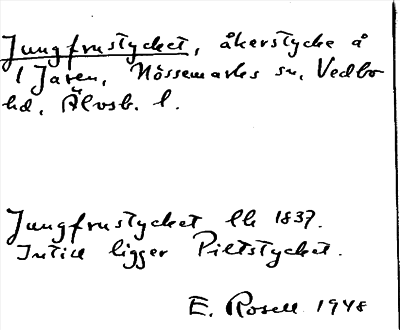 Jungfrustycket, åkerstycke å
1 Jaren, Nössemarks sn, Vedbo
hd, Älvsb. l.
Jungfrustycket lh 1837.
Intill ligger Piltstycket.
E. Rosell 1948